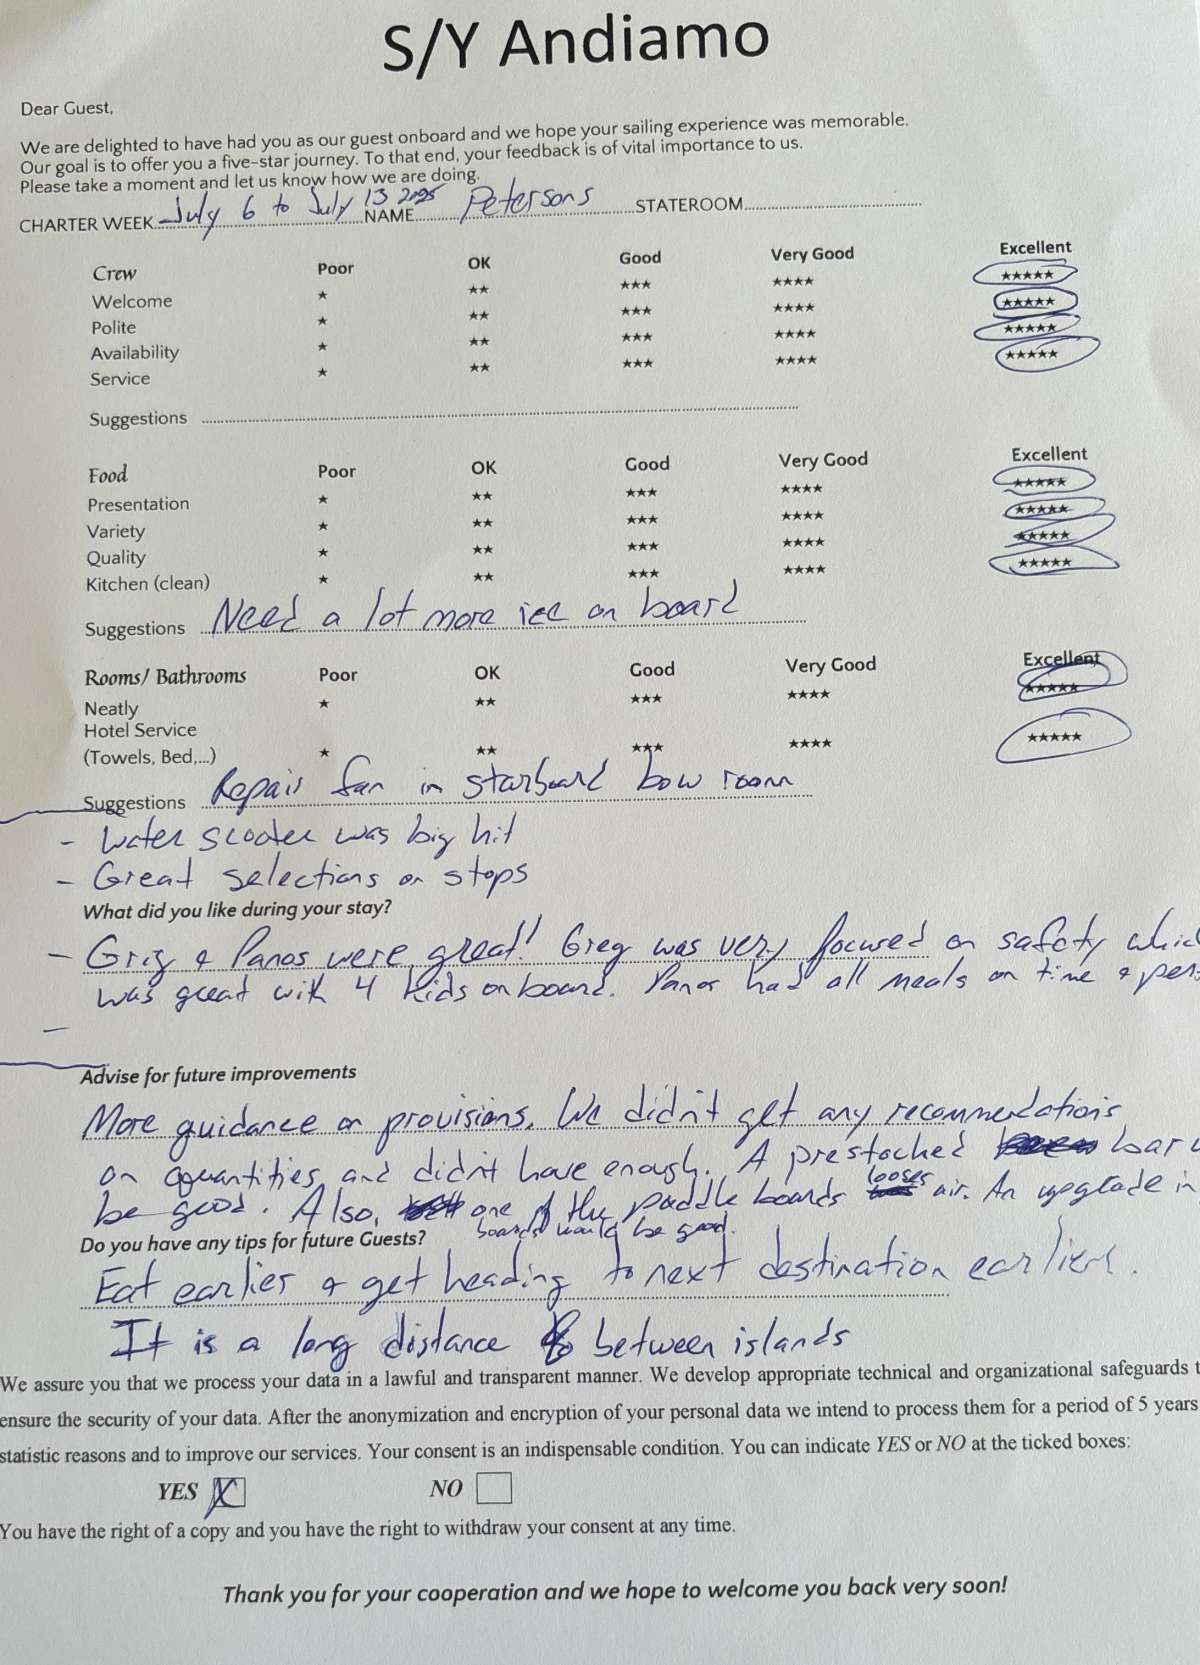 S/Y Andiamo
Dear Guest,
We are delighted to have had you as our guest onboard and we hope your sailing experience was memorable.
Our goal is to offer you a five-star journey. To that end, your feedback is of vital importance to us.
Please take a moment and let us know how we are doing.
CHARTER WEEK July 6 to July 13 2025 NAME Petersons STATEROOM
Crew Poor OK Good Very Good Excellent
Welcome ★ ★★ ★★★ ★★★★ ★★★★★
Polite ★ ★★ ★★★ ★★★★ ★★★★★
Availability ★ ★★ ★★★ ★★★★ ★★★★★
Service ★ ★★ ★★★ ★★★★ ★★★★★
Suggestions
Food Poor OK Good Very Good Excellent
Presentation ★ ★★ ★★★ ★★★★ ★★★★★
Variety ★ ★★ ★★★ ★★★★ ★★★★★
Quality ★ ★★ ★★★ ★★★★ ★★★★★
Kitchen (clean) ★ ★★ ★★★ ★★★★ ★★★★★
Suggestions Need a lot more ice on board
Rooms/ Bathrooms Poor OK Good Very Good Excellent
Neatly ★ ★★ ★★★ ★★★★ ★★★★★
Hotel Service
(Towels, Bed,...) ★ ★★ ★★★ ★★★★ ★★★★★
Suggestions Repair fan in starboard bow room
- Water scooter was big hit
- Great selections on stops
What did you like during your stay?
- Grig & Panos were great! Greg was very focused on safety whic
was great with 4 kids on board. Panos had all meals on time & per
-
Advise for future improvements
More guidance on provisions. We didn't get any recommendations
on quantities and didn't have enough. A prestocked bar
be good. Also, one of the paddle boards looses air. An upgrade in
boards would be good.
Do you have any tips for future Guests?
Eat earlier & get heading to next destination earlier.
It is a long distance between islands
We assure you that we process your data in a lawful and transparent manner. We develop appropriate technical and organizational safeguards t
ensure the security of your data. After the anonymization and encryption of your personal data we intend to process them for a period of 5 years
statistic reasons and to improve our services. Your consent is an indispensable condition. You can indicate YES or NO at the ticked boxes:
YES X NO
You have the right of a copy and you have the right to withdraw your consent at any time.
Thank you for your cooperation and we hope to welcome you back very soon!